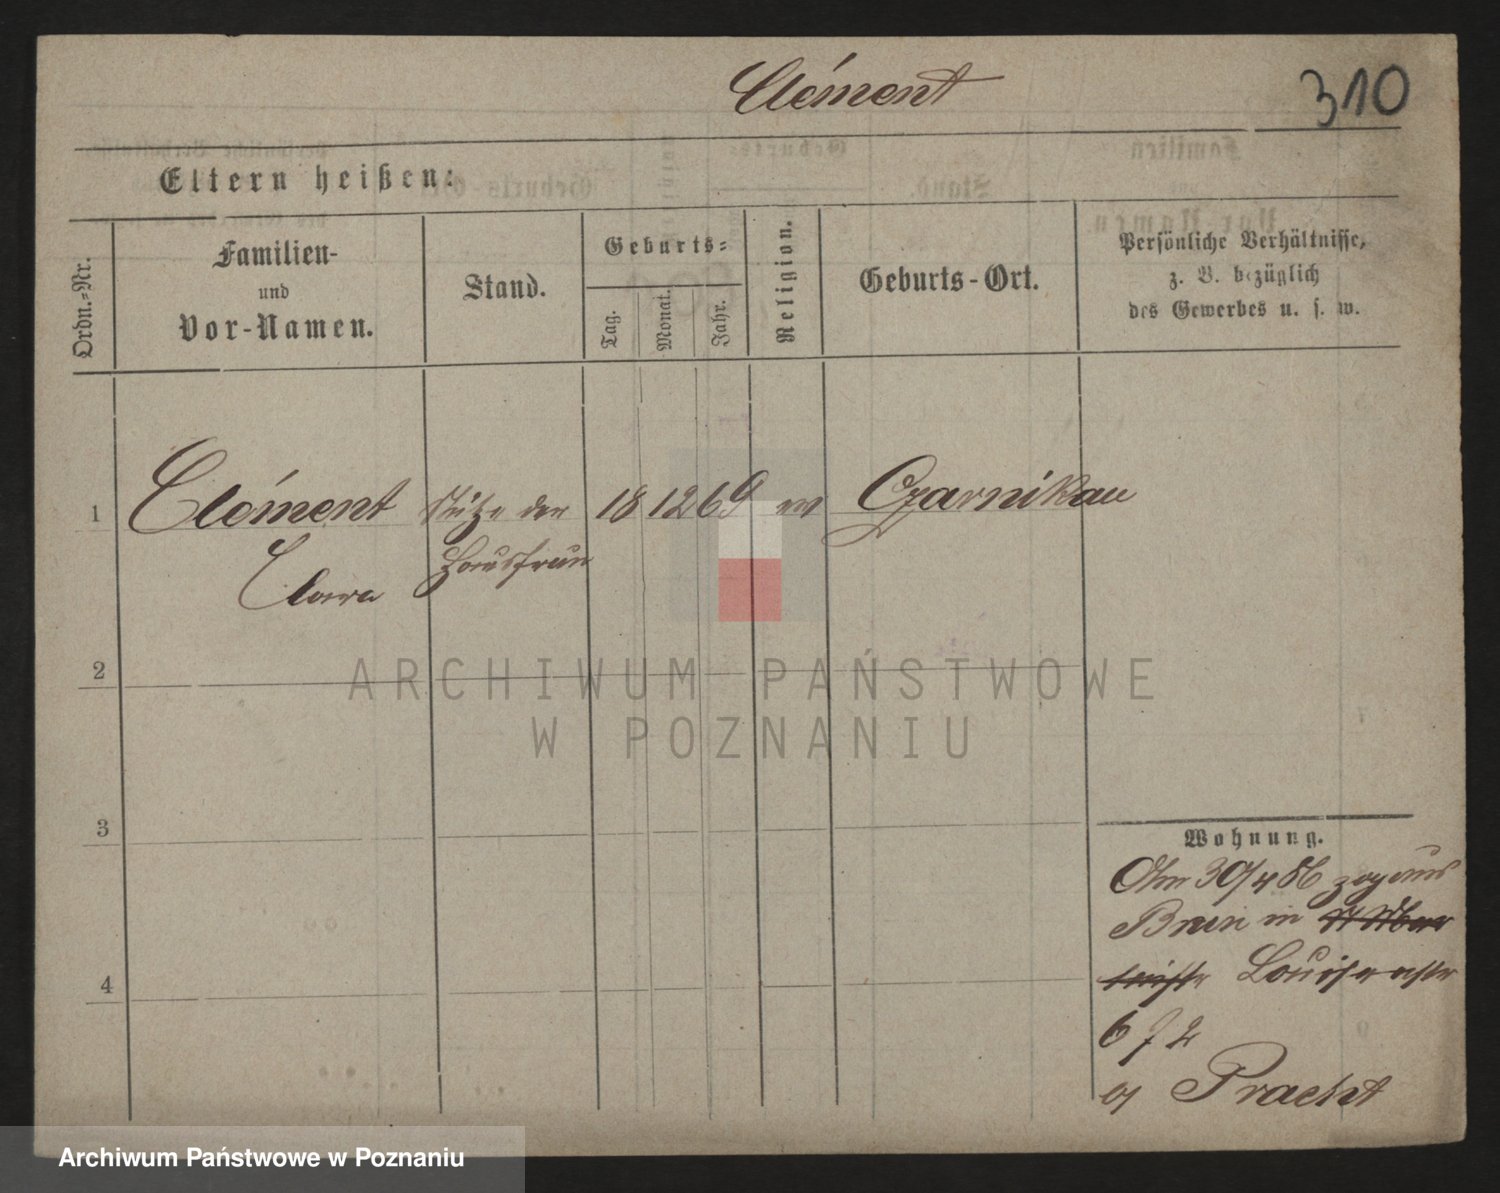 Clément
310
Eltern heißen:
Ordn.-Nr.
Familien-
und
Vor-Namen.
Stand.
Geburts-
Tag.
Monat.
Jahr.
Religion.
Geburts-Ort.
Persönliche Verhältnisse,
z. B. bezüglich
des Gewerbes u. s. w.
1 Clément Stütze der 18 12 69 ev Czarnikau
Clara Hausfrau
2
3
4
Wohnung.
30/4 86
in
Louisenstr
6 f 2
Pracht
ARCHIWUM PAŃSTWOWE
W POZNANIU
Archiwum Państwowe w Poznaniu